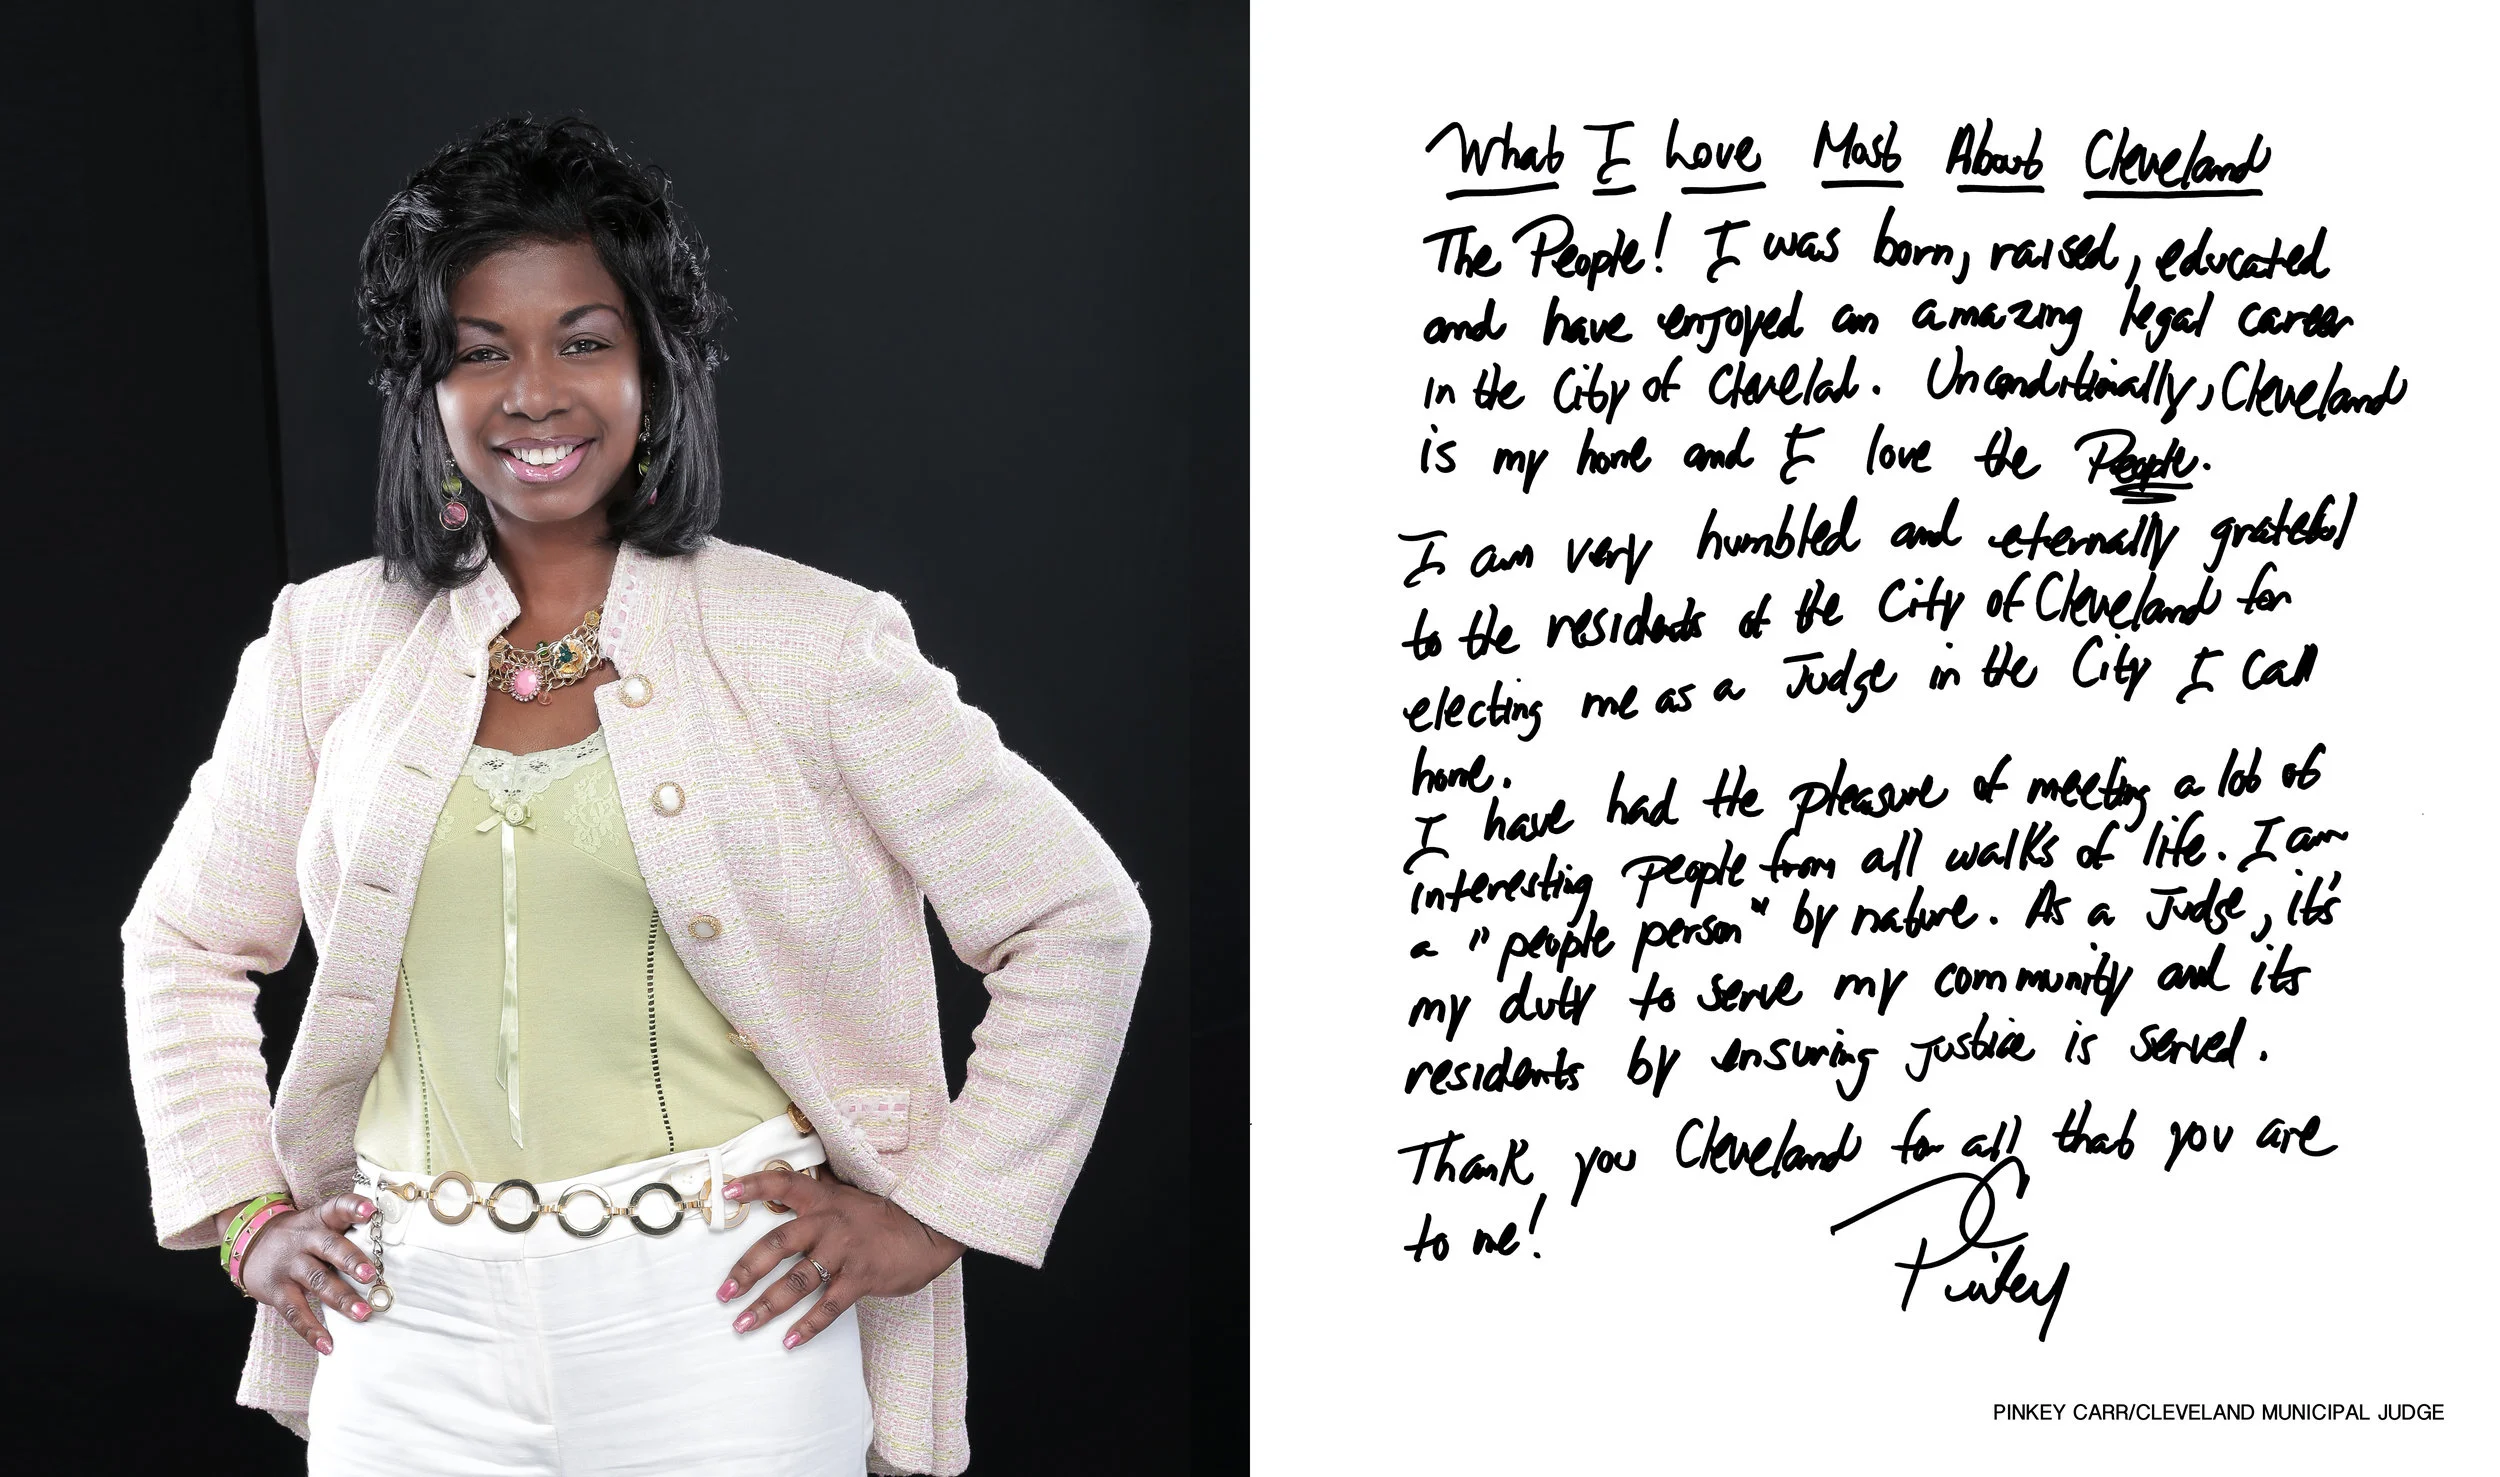 What I Love Most About Cleveland
The People! I was born, raised, educated
and have enjoyed an amazing legal career
in the City of Clevelad. Unconditionally, Cleveland
is my home and I love the People.
I am very humbled and eternally grateful
to the residents of the City of Cleveland for
electing me as a Judge in the City I call
home.
I have had the pleasure of meeting a lot of
interesting people from all walks of life. I am
a "people person" by nature. As a Judge, it's
my duty to serve my community and its
residents by ensuring justice is served.
Thank you Cleveland for all that you are
to me!
Pinkey
PINKEY CARR/CLEVELAND MUNICIPAL JUDGE